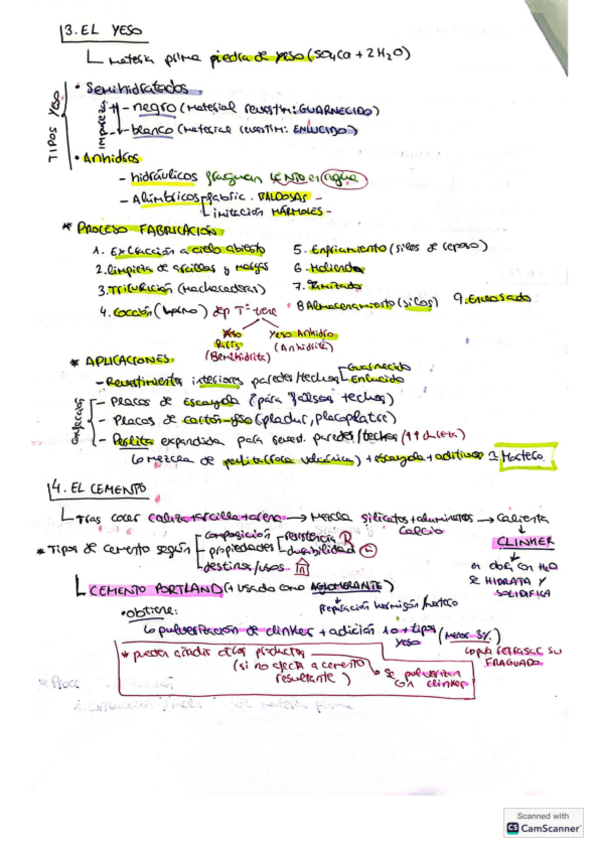 3. EL YESO
materia prima piedra de yeso (SO4Ca + 2H2O)
TIPOS YESO
• Semihidratados
impurezas
+ - negro (material revestim: GUARNECIDO)
- - blanco (material revestim: ENLUCIDO)
• Anhidros
- hidráulicos fraguan LENTO en agua
- Alúmbricos fabric. BALDOSAS -
imitación MÁRMOLES -
* PROCESO FABRICACIÓN
1. Extracción a cielo abierto
2. limpieza de arcillas y margas
3. TRITURACIÓN (Machacadoras)
4. cocción (horno) dep Tª tiene
Yeso
(Semihidrita)
Yeso Anhidro
(Anhidrita)
5. Enfriamiento (silos de reposo)
6. Molienda
7. Tamizado
8 Almacenamiento (silos)
9. Ensacado
* APLICACIONES
- Revestimientos interiores paredes/techos
Guarnecido
Enlucido
- Placas de Escayola (para falsos techos)
- Placas de cartón-yeso (pladur, placoplatre)
- Perlita expandida para revest. paredes/techos (↑↑ dureza)
mezcla de perlita (roca volcánica) + escayola + aditivos = Mortero
4. EL CEMENTO
Tras cocer caliza + arcilla + arena → Mezcla silicatos + aluminatos → Calienta
calcio
CLINKER
en dosis con H2O
SE HIDRATA Y
SOLIDIFICA
* Tipos de cemento según
composición
propiedades
resistencia R
durabilidad
destinos/usos
CEMENTO PORTLAND (+ usado como AGLOMERANTE)
Preparación hormigón/mortero
• obtiene:
pulverización de clinker + adición 1 o + tipos
yeso
(Menor 3%)
para retrasar su
FRAGUADO
* pueden añadir otros productos
(si no afecta a cemento
resultante)
se pulverizan
con clinker
Scanned with
CS CamScanner